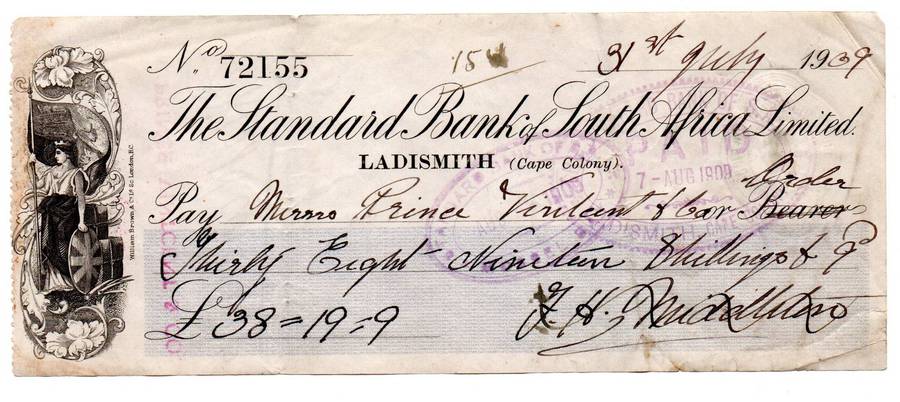 No. 72155
154
31st July 1909
The Standard Bank of South Africa Limited.
LADISMITH (Cape Colony).
PAID
7-AUG 1909
Order
Pay Messrs Prince Vintcent & Co or Bearer
Thirty Eight Nineteen Shillings & 9
£38=19=9
William Brown & Co Ld Sc London, E.C.